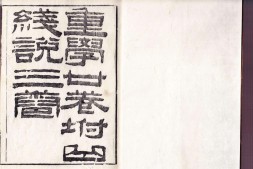 重學廿卷坿曲
綫說三箇